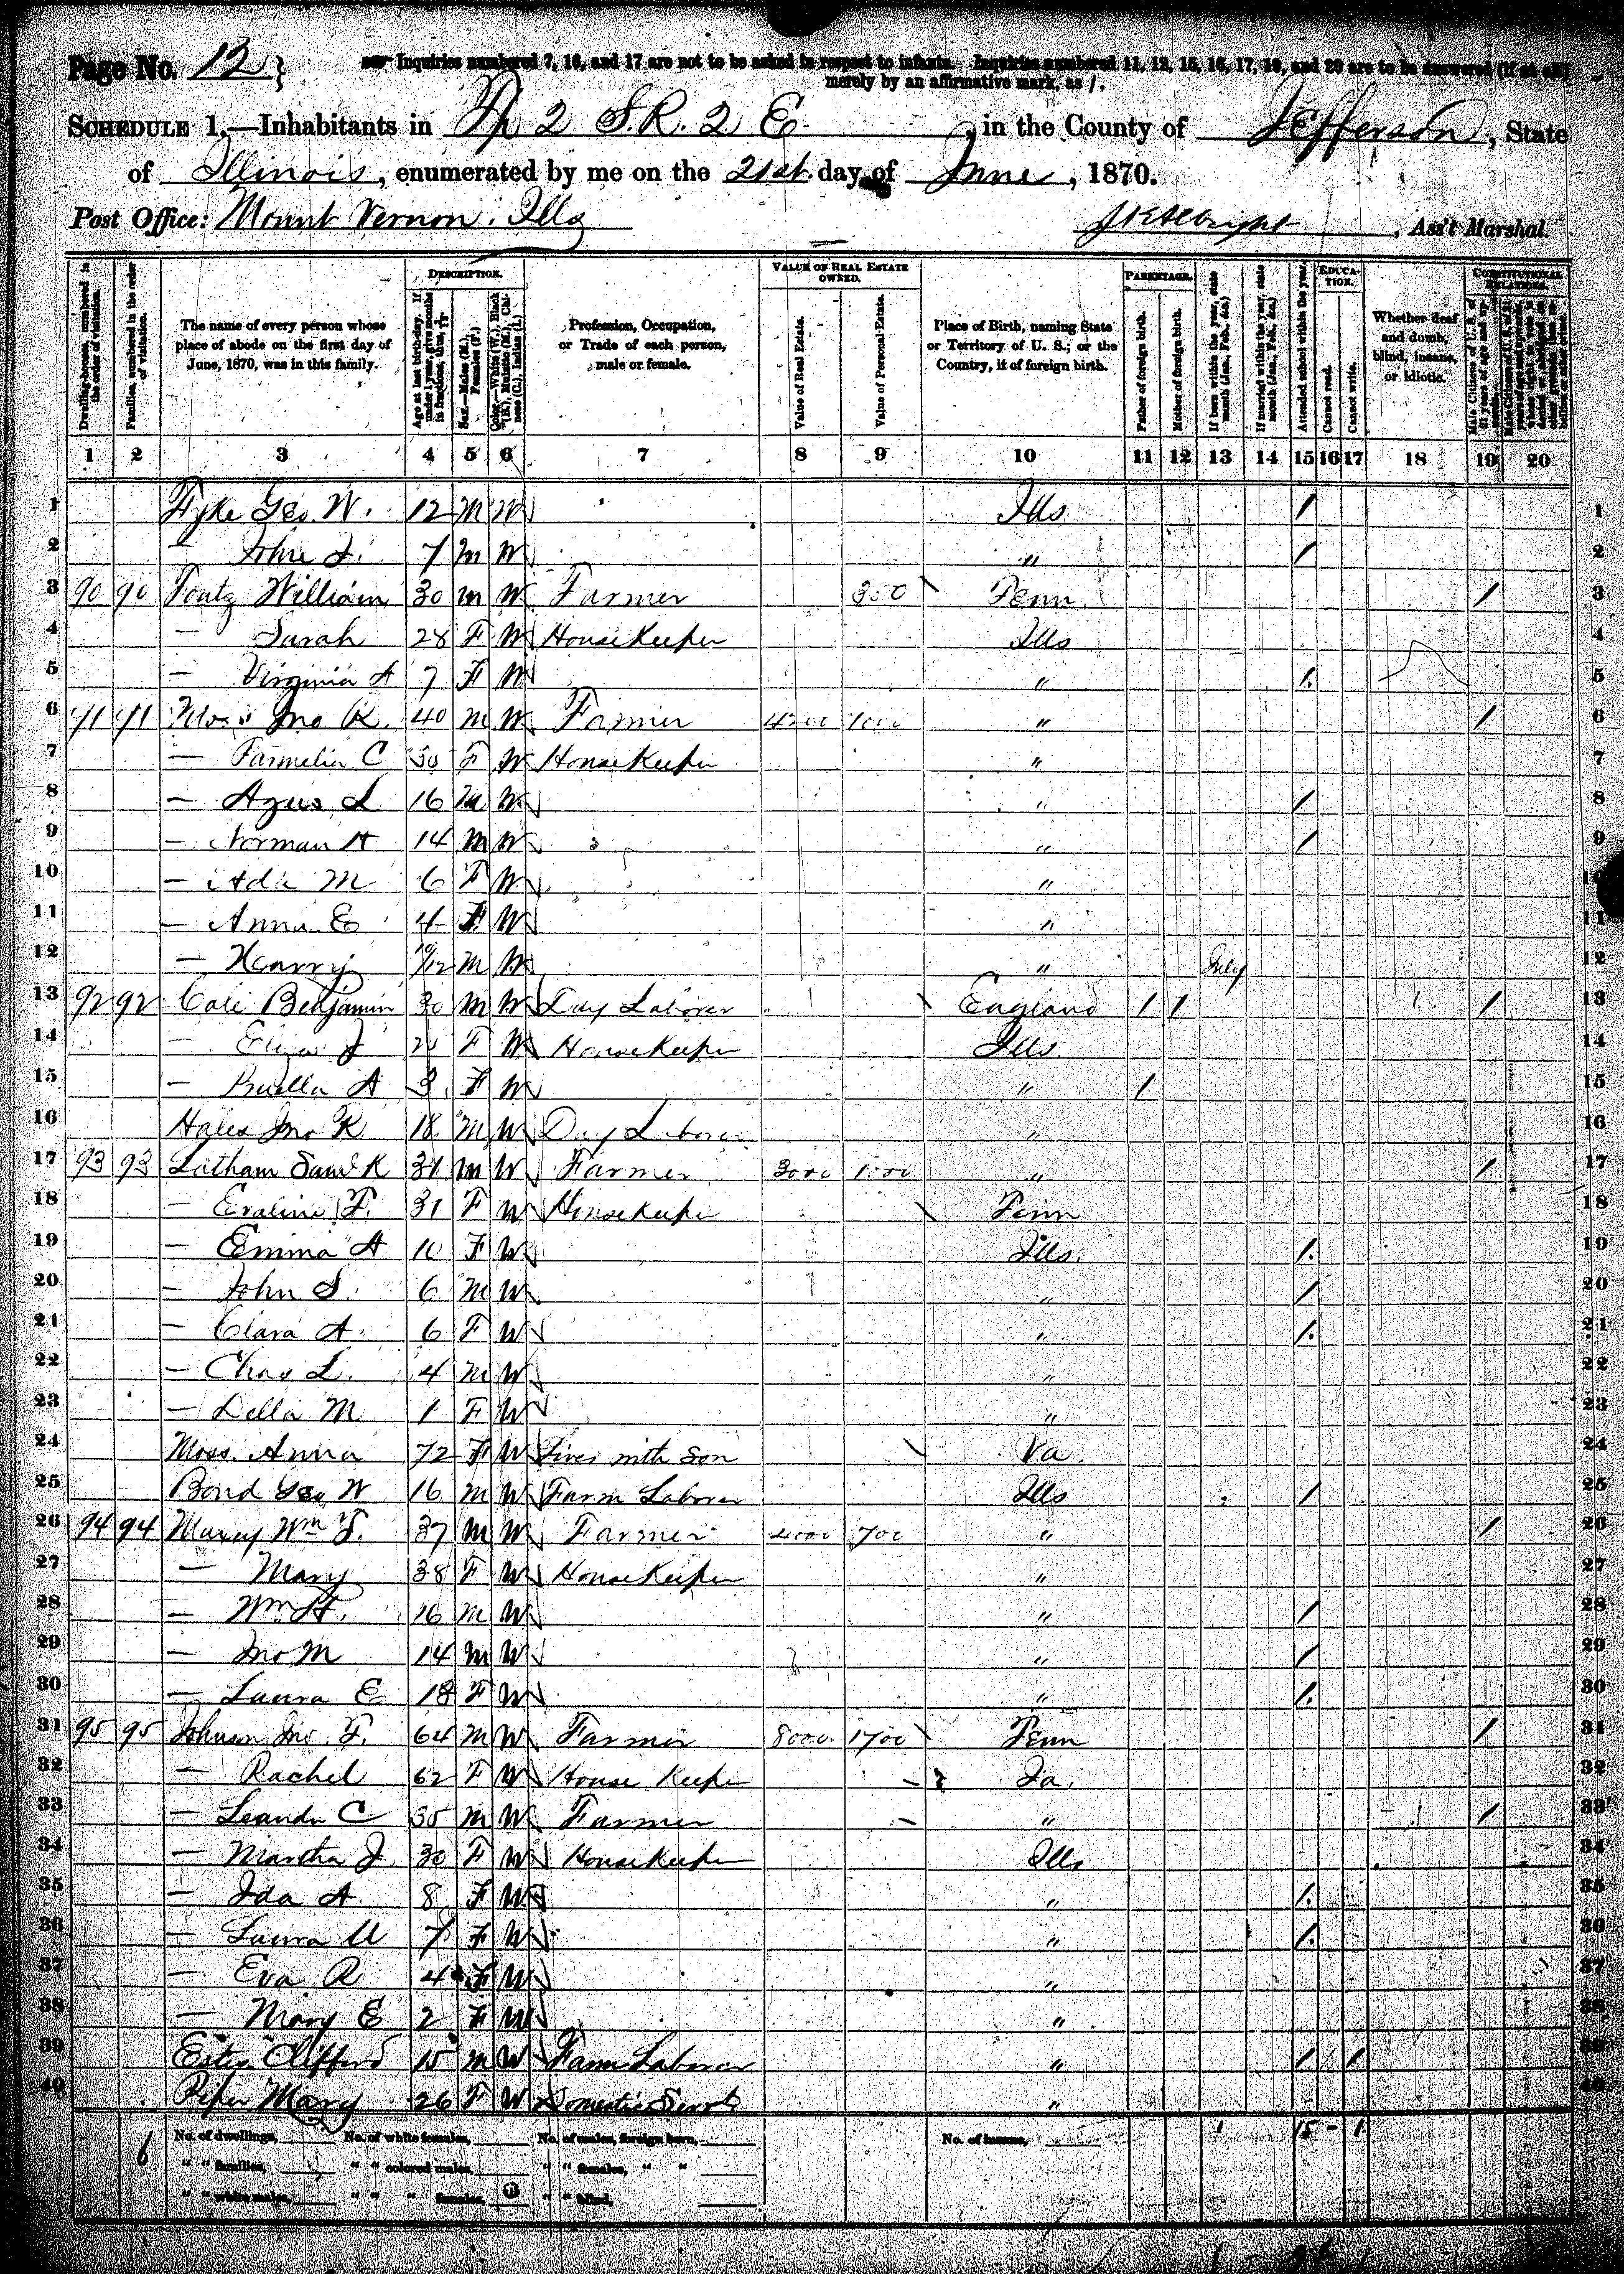 Page No. 12
Inquiries numbered 7, 16, and 17 are not to be asked in respect to infants. Inquiries numbered 11, 12, 15, 16, 17, 19, and 20 are to be answered (if at all)
merely by an affirmative mark, as /.
SCHEDULE 1.—Inhabitants in Tp 2 S. R. 2 E., in the County of Jefferson, State
of Illinois, enumerated by me on the 21st day of June, 1870.
Post Office: Mount Vernon, Ills
Albright, Ass't Marshal.
DESCRIPTION. VALUE OF REAL ESTATE OWNED. PARENTAGE. EDUCATION. CONSTITUTIONAL RELATIONS.
Dwelling-houses, numbered in the order of visitation.
Families, numbered in the order of visitation.
The name of every person whose place of abode on the first day of June, 1870, was in this family.
Age at last birth-day. If under 1 year, give months in fractions, thus,
Sex.—Males (M.), Females (F.)
Color.—White (W.), Black (B.), Mulatto (M.), Chinese (C.), Indian (I.)
Profession, Occupation, or Trade of each person, male or female.
Value of Real Estate.
Value of Personal Estate.
Place of Birth, naming State or Territory of U. S.; or the Country, if of foreign birth.
Father of foreign birth.
Mother of foreign birth.
If born within the year, state month (Jan., Feb., &c.)
If married within the year, state month (Jan., Feb., &c.)
Attended school within the year.
Cannot read.
Cannot write.
Whether deaf and dumb, blind, insane, or idiotic.
Male Citizens of U. S. of 21 years of age and upwards.
1 2 3 4 5 6 7 8 9 10 11 12 13 14 15 16 17 18 19 20
1 Fyke Geo. W. 12 M W Ills / 1
2 — John J. 7 M W " / 2
3 90 90 Foutz William 30 M W Farmer 300 Penn / 3
4 — Sarah 28 F W House Keeper Ills 4
5 — Virginia A 7 F W " / 5
6 91 91 Moss Jno R. 40 M W Farmer 4200 1000 " / 6
7 — C 30 F W House Keeper " 7
8 — L 16 M W " / 8
9 — Norman H 14 M W " / 9
10 — Ada M 6 F W " 10
11 — Anna E 4 F W " 11
12 — Harry 10/12 M W " July 12
13 92 92 Benjamin 30 M W Day Laborer England / / / 13
14 — Eliza J F W House Keeper Ills 14
15 — A 3 F W " / 15
16 Hales Jno K 18 M W Day Laborer " 16
17 93 93 Latham Saml K 31 M W Farmer 3000 1500 " / 17
18 — Evaline F. 31 F W House Keeper Penn 18
19 — Emma A 10 F W Ills. / 19
20 — John S. 6 M W " / 20
21 — Clara A. 6 F W " / 21
22 — Chas L. 4 M W " 22
23 — Della M 1 F W " 23
24 Moss Anna 72 F W Lives with Son Va 24
25 Bond Geo W 16 M W Farm Laborer Ills / 25
26 94 94 Maxey Wm T. 37 M W Farmer 4000 700 " / 26
27 — Mary 38 F W House Keeper " 27
28 — Wm H. 16 M W " / 28
29 — Jno M 14 M W " / 29
30 — Laura E 18 F W " / 30
31 95 95 Johnson Jno. T. 64 M W Farmer 8000 1700 Penn / 31
32 — Rachel 62 F W House Keeper 32
33 — Leandr C 35 M W Farmer " / 33
34 — Martha J 30 F W House Keeper Ills 34
35 — Ida A. 8 F W " / 35
36 — Laura U 7 F W " / 36
37 — Eva R 4 F W " 37
38 — Mary E 2 F W " 38
39 Estes Clifford 15 M W Farm Laborer " / / 39
40 Piper Mary 26 F W Domestic Servt " 40
6 No. of dwellings, No. of white females, No. of males, foreign born, No. of insane, 1 15 - 1
" " families, " " colored males, " " females, " "
" " white males, " " " females, " " blind,